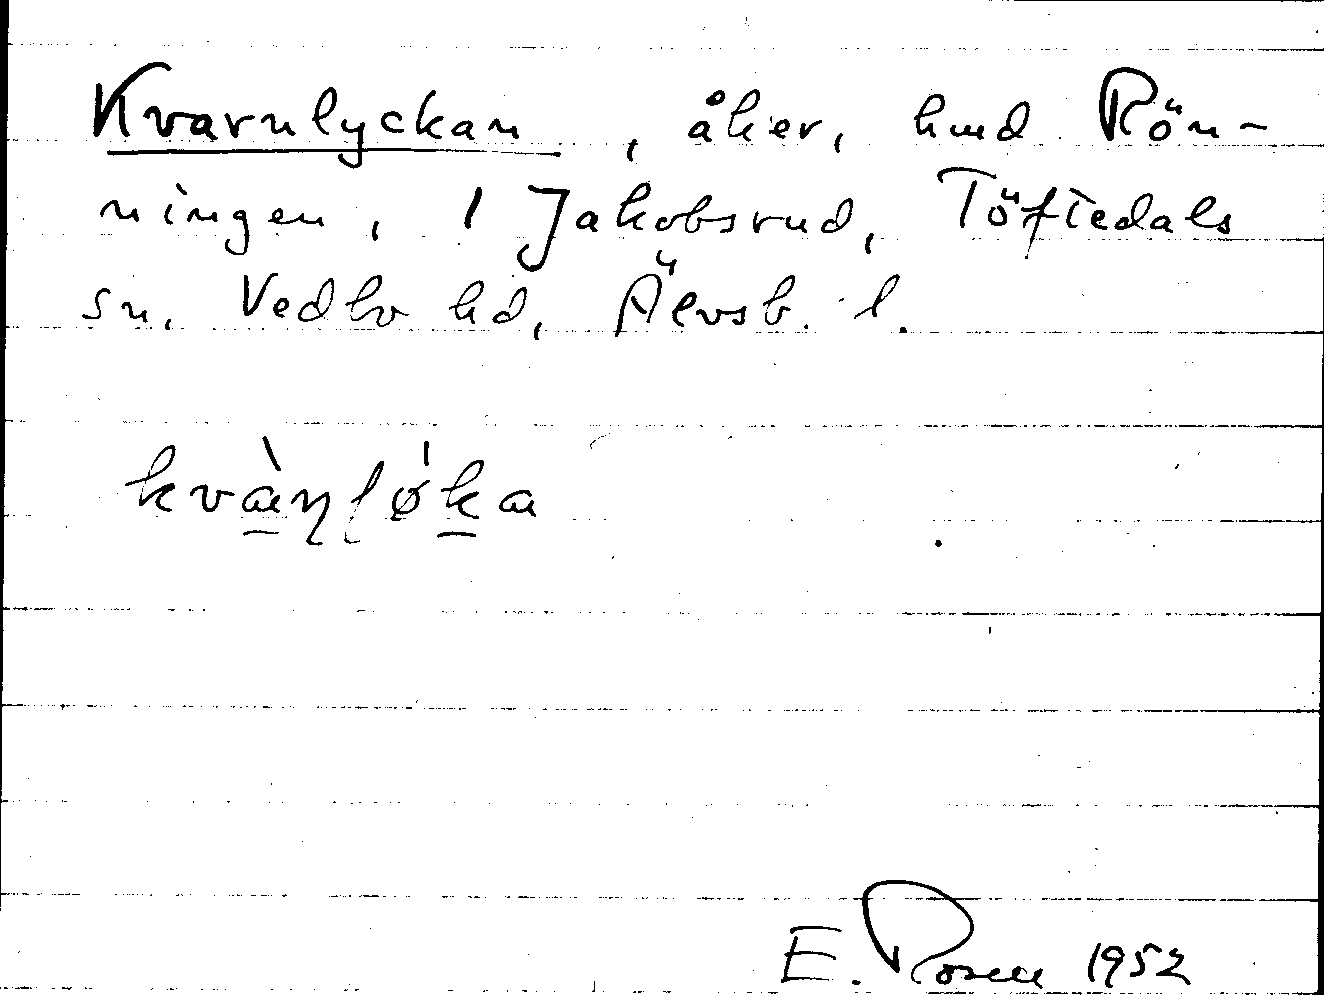 Kvarnlyckan, åker, hmd Rön-
ningen, 1 Jakobsrud, Töftedals
sn. Vedbo hd, Älvsb. l.
kvàɳļø̍ka
E. Rosen 1952